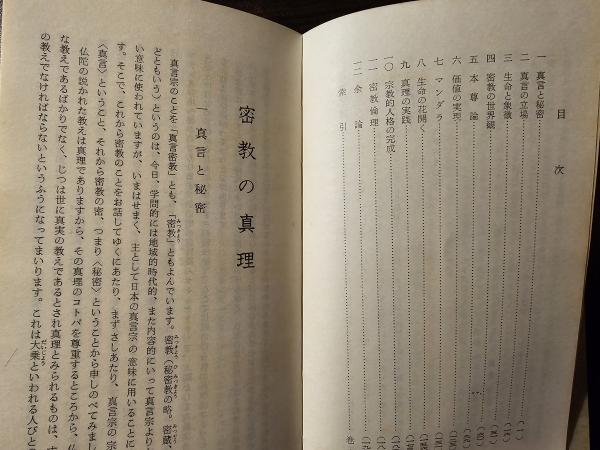 目次
一 真言と秘密
二 真言の立場
三 生命と象徴
四 密教の世界観
五 本尊論
六 価値の実現
七 マンダラ
八 生命の花開く
九 真理の実践
一〇 宗教的人格の完成
一一 密教倫理
一二 余論
索引
密教の真理
一 真言と秘密
真言宗のことを「真言密教」とも、「密教」ともよんでいます。密教(秘密教の略。密蔵、
どともいう)というのは、今日、学問的には地域的時代的、また内容的にいって真言宗より
い意味に使われていますが、いまはせまく、主として日本の真言宗の意味に用いることに
す。そこで、これから密教のことをお話してゆくにあたり、まずさしあたり、真言宗の宗
〈真言〉ということ、それから密教の密、つまり〈秘密〉ということから申しのべてみまし
仏陀の説かれた教えは真理でありますから、その真理のコトバを尊重するところから、仏
な教えであるばかりでなく、じつは世に真実の教えであるとされ真理とみられるものは、
の教えでなければならないというふうになってまいります。これは大乗といわれる人びと